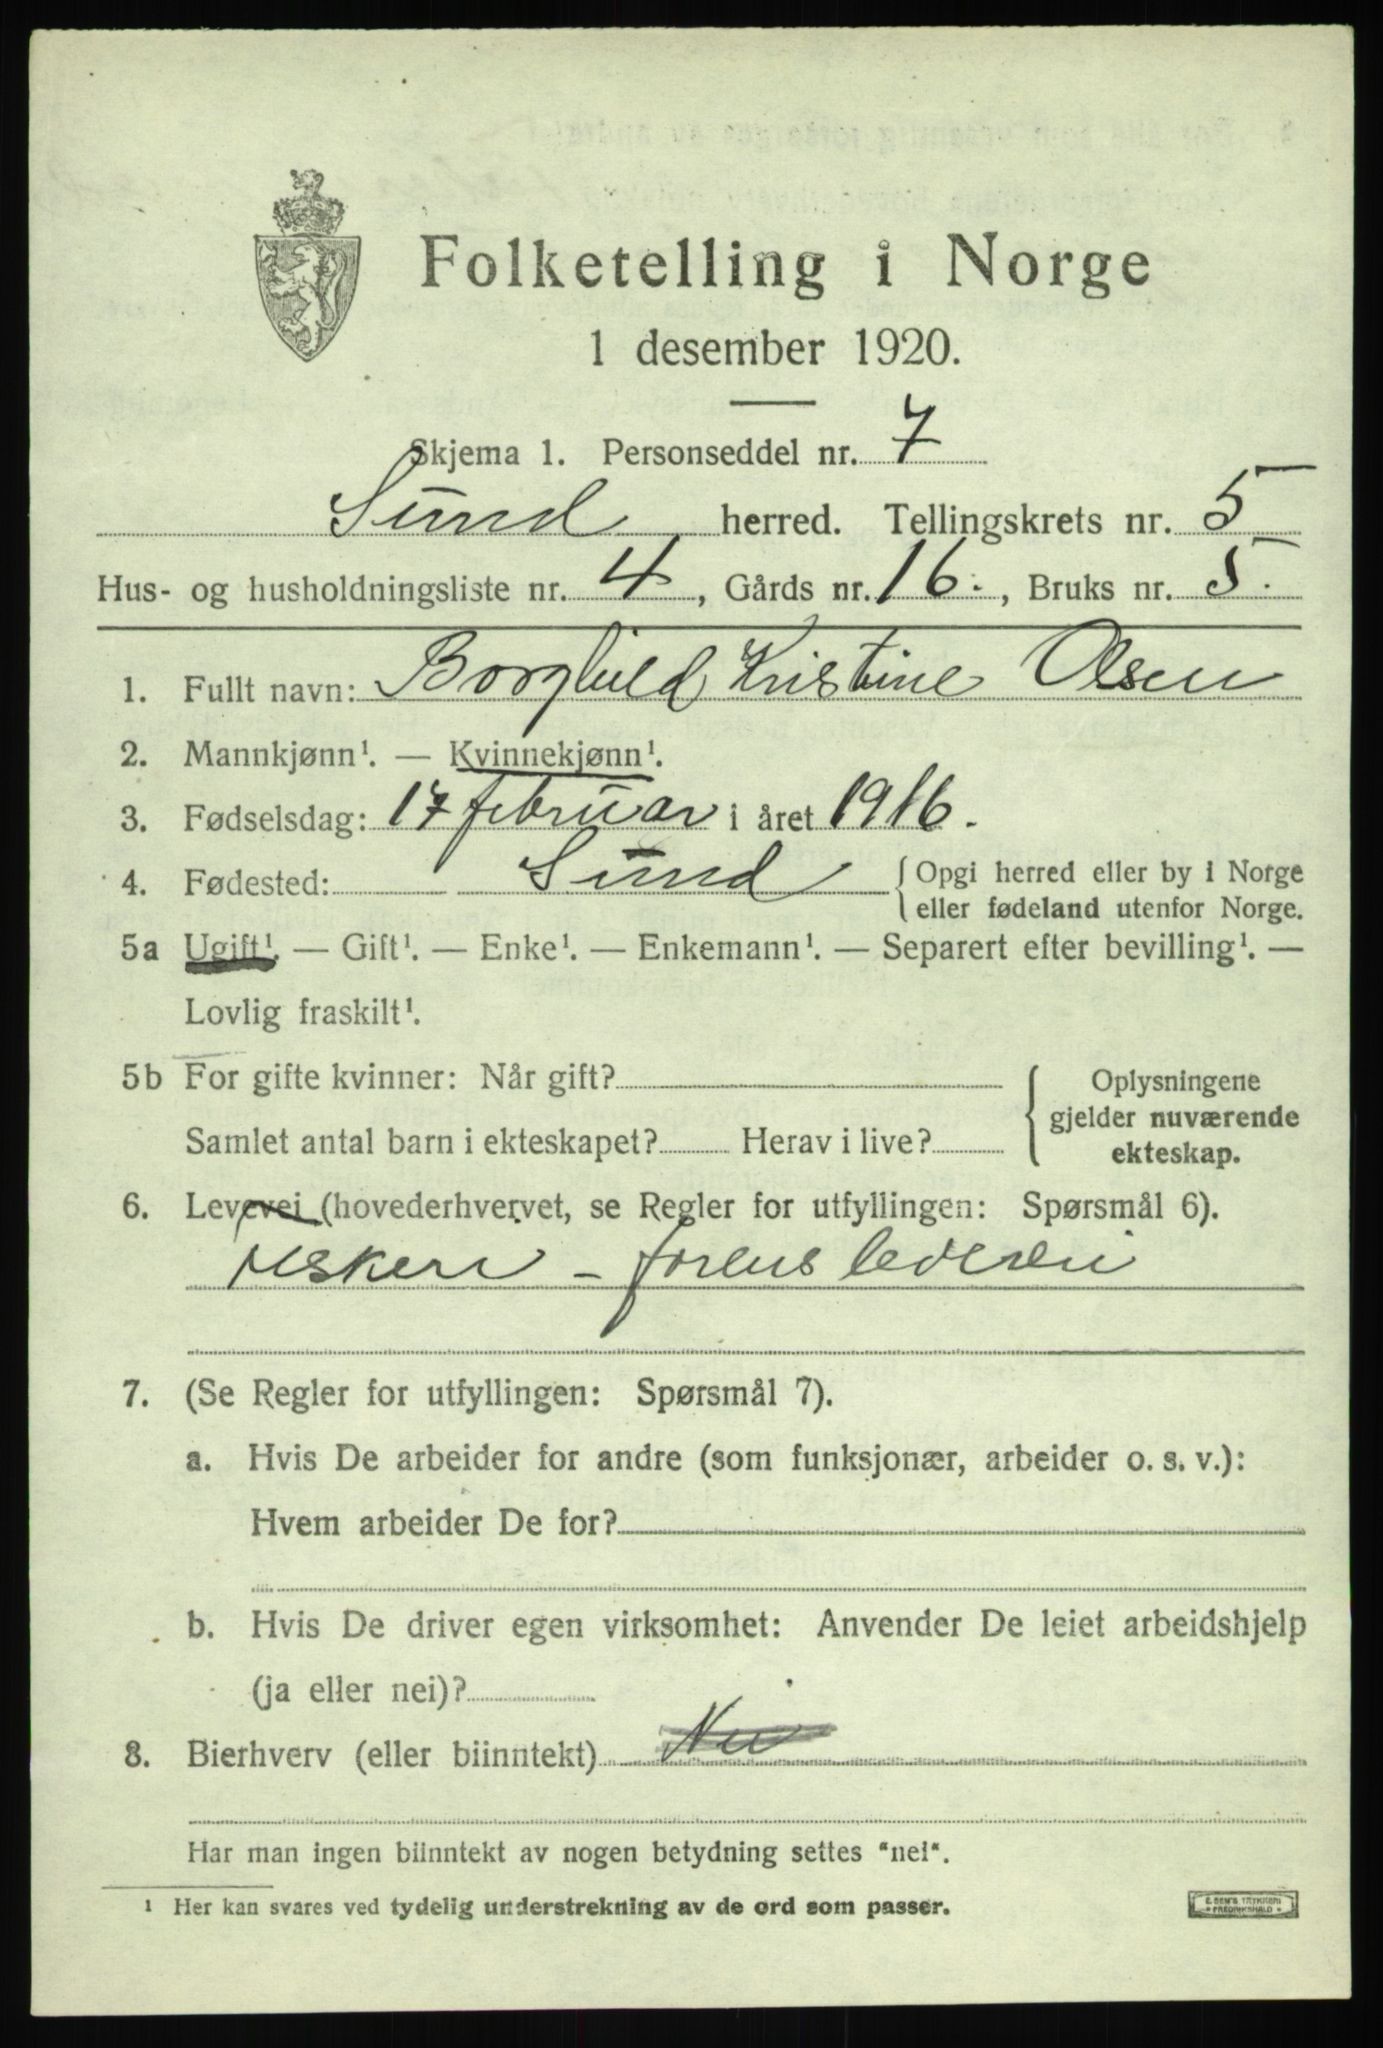 Folketelling i Norge
1 desember 1920.
Skjema 1. Personseddel nr. 7
Sund herred. Tellingskrets nr. 5
Hus- og husholdningsliste nr. 4, Gårds nr. 16., Bruks nr. 5.
1. Fullt navn: Borghild Kristine Olsen
2. Mannkjønn¹. — Kvinnekjønn¹.
3. Fødselsdag: 17 februar i året 1916.
4. Fødested: Sund { Opgi herred eller by i Norge
eller fødeland utenfor Norge.
5a Ugift¹. — Gift¹. — Enke¹. — Enkemann¹. — Separert efter bevilling¹. —
Lovlig fraskilt¹.
5b For gifte kvinner: Når gift? { Oplysningene
gjelder nuværende
Samlet antal barn i ekteskapet? Herav i live? ekteskap.
6. Levevei (hovederhvervet, se Regler for utfyllingen: Spørsmål 6).
7. (Se Regler for utfyllingen: Spørsmål 7).
a. Hvis De arbeider for andre (som funksjonær, arbeider o. s. v.):
Hvem arbeider De for?
b. Hvis De driver egen virksomhet: Anvender De leiet arbeidshjelp
(ja eller nei)?
8. Bierhverv (eller biinntekt) Nei
Har man ingen biinntekt av nogen betydning settes "nei".
¹ Her kan svares ved tydelig understrekning av de ord som passer.
E. SEM'S TRYKKERI
FREDRIKSHALD